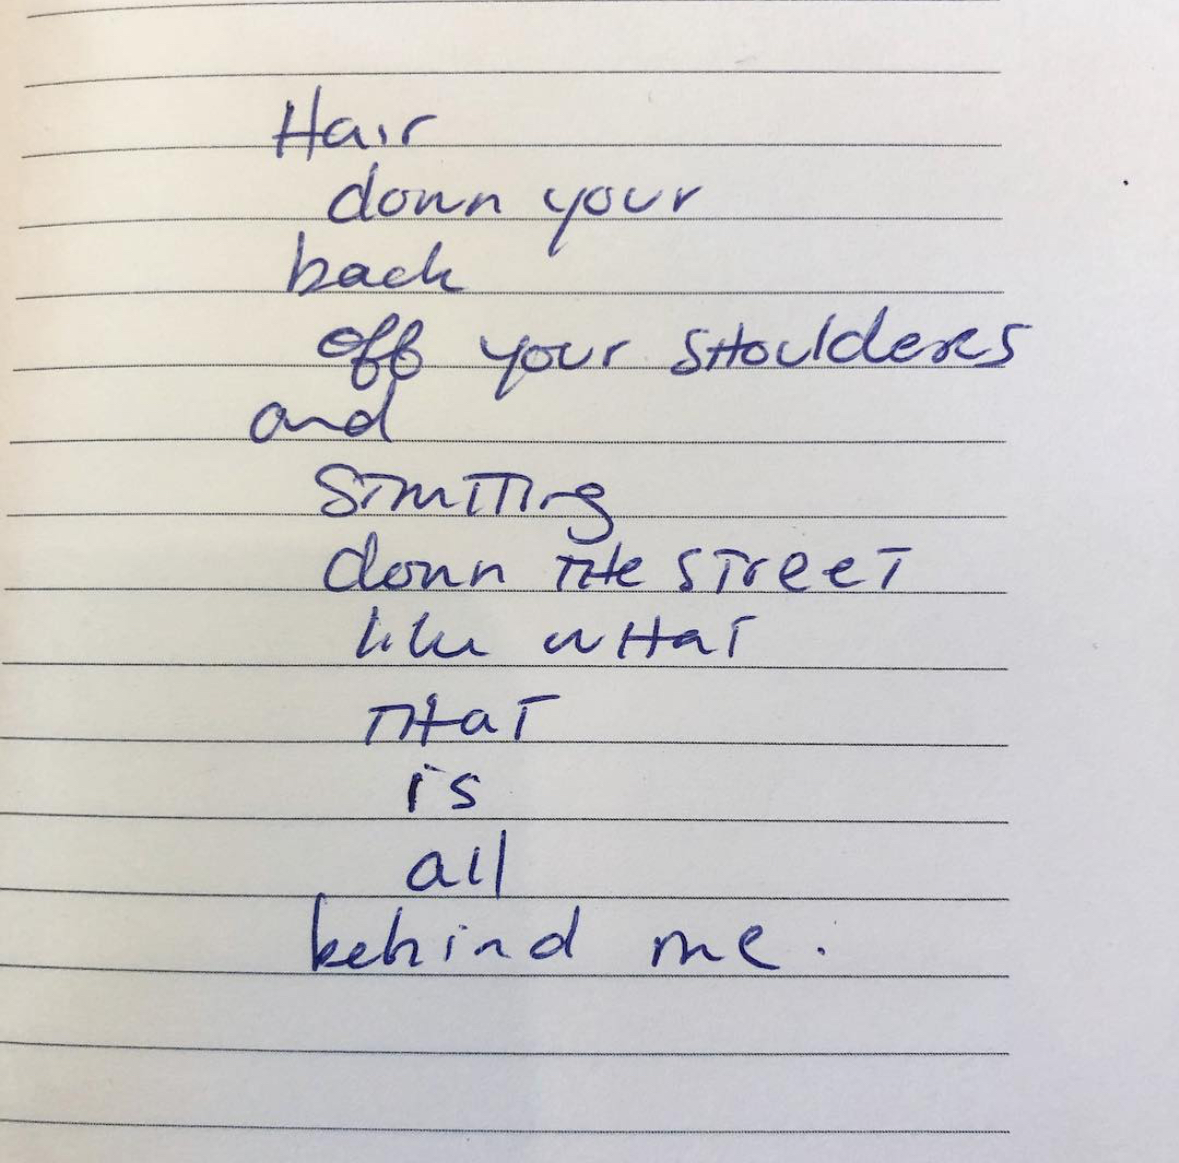 Hair
down your
back
off your shoulders
and
strutting
down the street
like what
that
is
all
behind me.